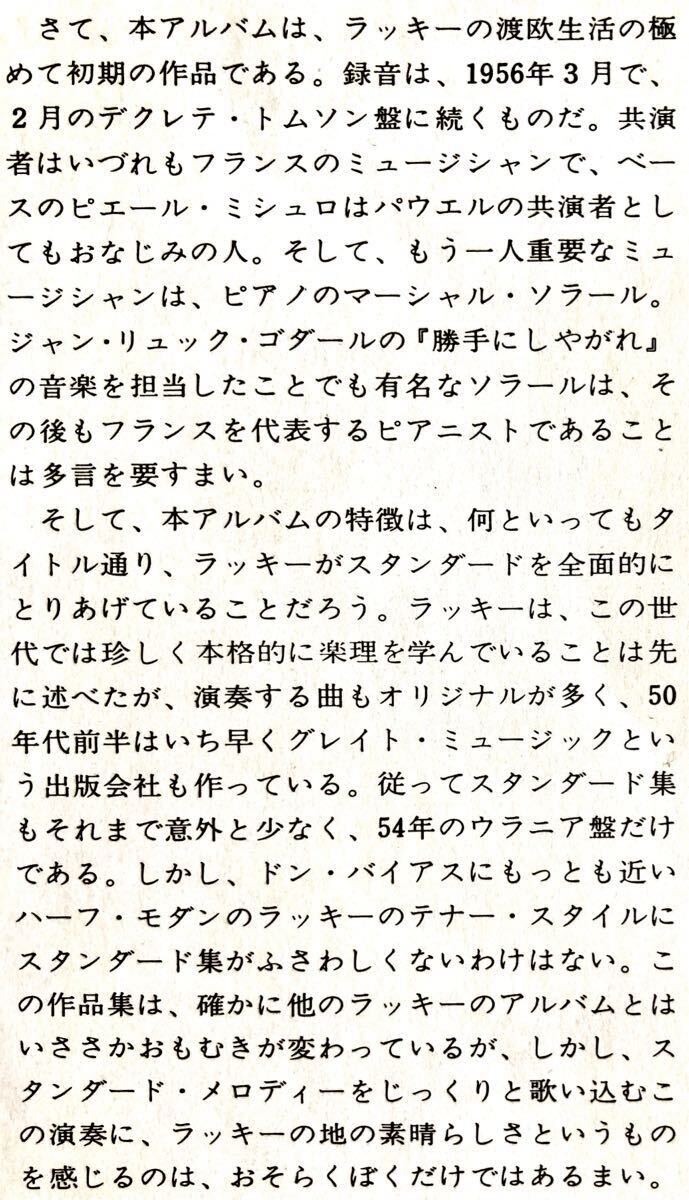 さて、本アルバムは、ラッキーの渡欧生活の極
めて初期の作品である。録音は、1956年3月で、
2月のデクレテ・トムソン盤に続くものだ。共演
者はいづれもフランスのミュージシャンで、ベー
スのピエール・ミシュロはパウエルの共演者とし
てもおなじみの人。そして、もう一人重要なミュ
ージシャンは、ピアノのマーシャル・ソラール。
ジャン・リュック・ゴダールの『勝手にしやがれ』
の音楽を担当したことでも有名なソラールは、そ
の後もフランスを代表するピアニストであること
は多言を要すまい。
そして、本アルバムの特徴は、何といってもタ
イトル通り、ラッキーがスタンダードを全面的に
とりあげていることだろう。ラッキーは、この世
代では珍しく本格的に楽理を学んでいることは先
に述べたが、演奏する曲もオリジナルが多く、50
年代前半はいち早くグレイト・ミュージックとい
う出版会社も作っている。従ってスタンダード集
もそれまで意外と少なく、54年のウラニア盤だけ
である。しかし、ドン・バイアスにもっとも近い
ハーフ・モダンのラッキーのテナー・スタイルに
スタンダード集がふさわしくないわけはない。こ
の作品集は、確かに他のラッキーのアルバムとは
いささかおもむきが変わっているが、しかし、ス
タンダード・メロディーをじっくりと歌い込むこ
の演奏に、ラッキーの地の素晴らしさというもの
を感じるのは、おそらくぼくだけではあるまい。